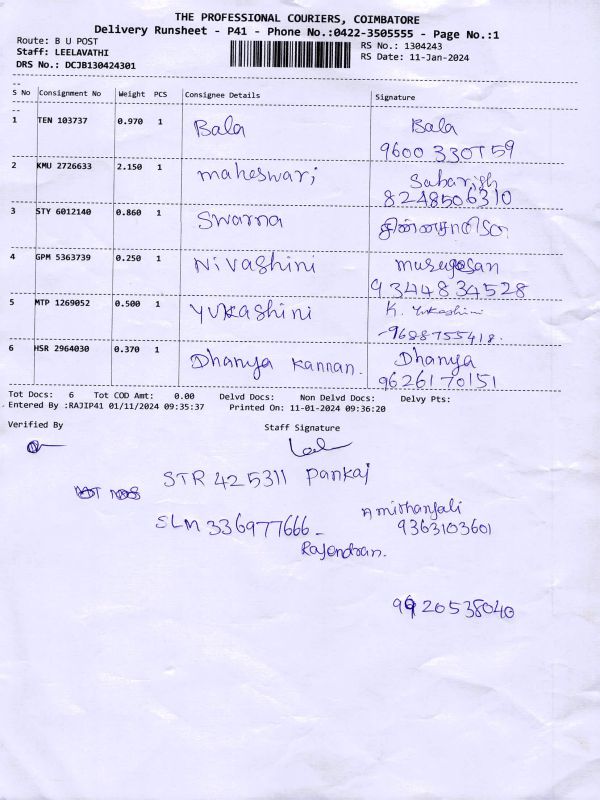 THE PROFESSIONAL COURIERS, COIMBATORE
Delivery Runsheet - P41 - Phone No.:0422-3505555 - Page No.:1
Route: B U POST
Staff: LEELAVATHI
DRS No.: DCJB130424301
RS No.: 1304243
RS Date: 11-Jan-2024
S No Consignment No Weight PCS Consignee Details Signature
1 TEN 103737 0.970 1 Bala Bala
9600 330759
2 KMU 2726633 2.150 1 maheswari Sabarish
8248506310
3 STY 6012140 0.860 1 Swarna
4 GPM 5363739 0.250 1 Nivashini murugesan
9344834528
5 MTP 1269052 0.500 1 Yukashini K. Yukashini
9688755418.
6 HSR 2964030 0.370 1 Dhanya Kannan. Dhanya
9626170151
Tot Docs: 6 Tot COD Amt: 0.00 Delvd Docs: Non Delvd Docs: Delvy Pts:
Entered By :RAJIP41 01/11/2024 09:35:37 Printed On: 11-01-2024 09:36:20
Verified By Staff Signature
STR 425311 Pankaj
Amithanjali
SLM 336977666 - 9363103601
Rajendran.
9920538040